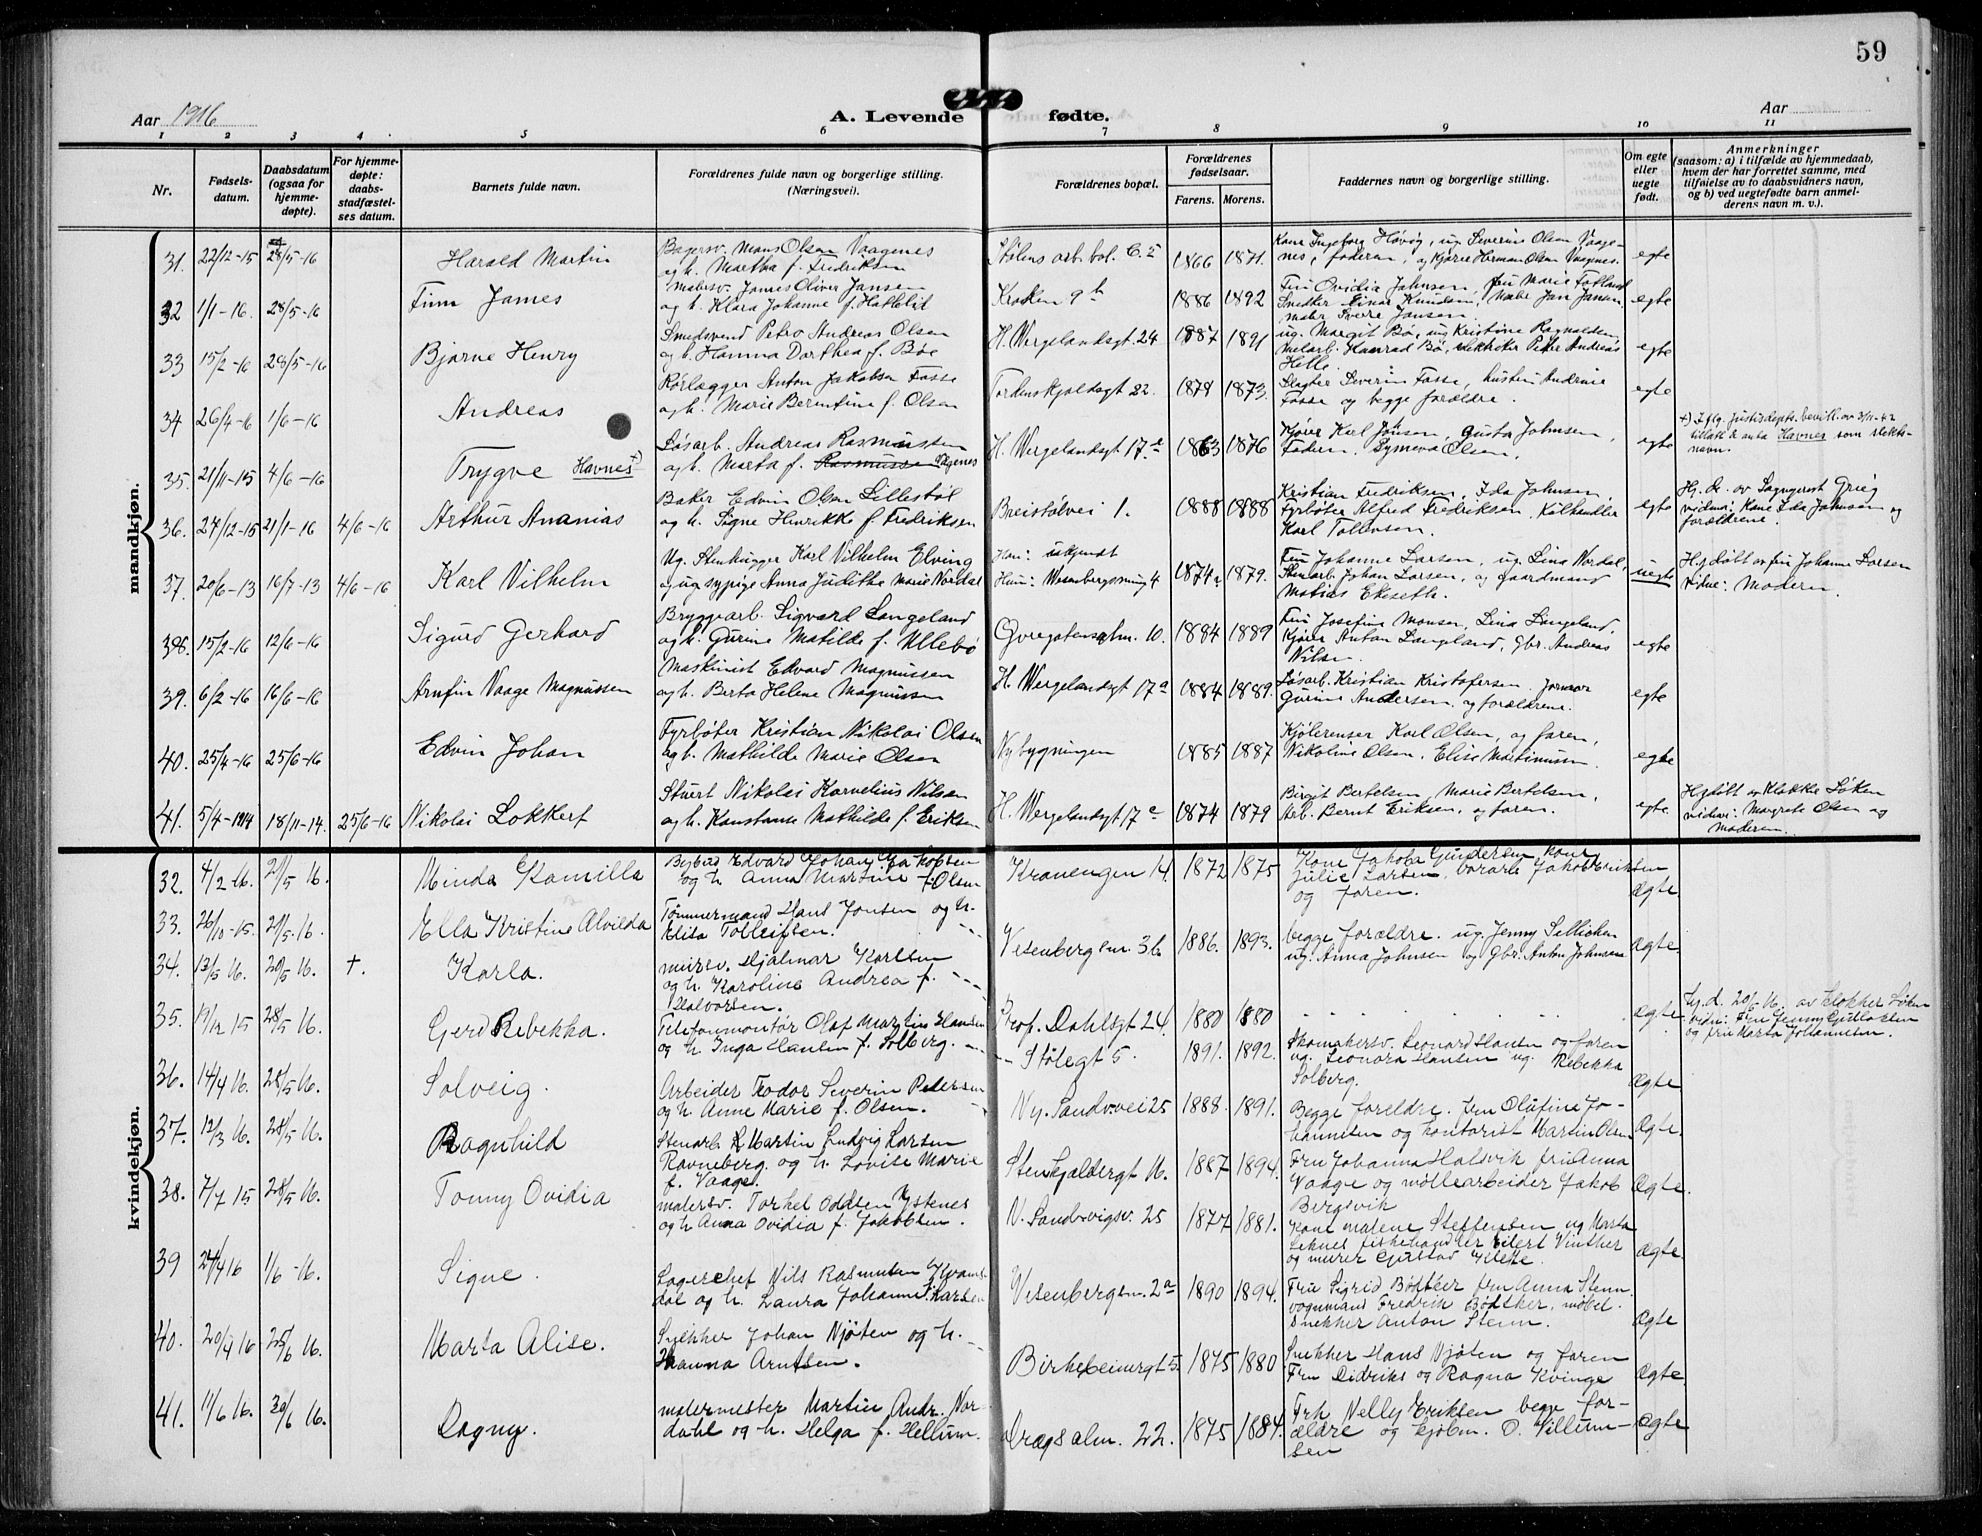 59
Aar 1916
A. Levende fødte.
Aar
1 2 3 4 5 6 7 8 9 10 11
Nr.
Fødsels-
datum.
Daabsdatum
(ogsaa for
hjemme-
døpte).
For hjemme-
døpte:
daabs-
stadfæstel-
ses datum.
Barnets fulde navn.
Forældrenes fulde navn og borgerlige stilling.
(Næringsvei).
Forældrenes bopæl.
Forældrenes
fødselsaar.
Farens. Morens.
Faddernes navn og borgerlige stilling.
Om egte
eller
uegte
født.
Anmerkninger
(saasom: a) i tilfælde av hjemmedaab,
hvem der har forrettet samme, med
tilføielse av to daabsvidners navn,
og b) ved uegtefødte barn anmel-
derens navn m. v.).
mandkjøn.
31. 22/12-15 28/5-16 Harald Martin
Bagersv. Mons Olsen Vaagenes
og h. Martha f. Fredriksen
Stølens arb. bol. C. 5 1866 1871.
Kone Ingeborg Høvåg, ug. Severine Olsen Vaage-
nes, faderen, og Kjører Herman Olsen Vaagenes.
egte
32 1/1-16. 28/5-16 Finn James
Malersv. James Oliver Jansen
og h. Klara Johanne f. Hatletit
Kroken 9 b 1886 1892
Fru Ovidia Johnsen, Fru Marie Folland
Snedker Einar Knudsen, Maler Jan Jansen,
maler Sverre Jansen.
egte
33 15/2-16 28/5-16 Bjarne Henry
Smedsvend Petro Andreas Olsen
og h. Hanna Dorthea f. Bøe
H. Wergelandsgt 24 1887 1891
ug. Margit Bø, ug Kristine Ragnalden,
Malarb. Konrad Bø, elektriker Peter Andreas
Helle.
egte
34 26/4-16 1/6-16 Andreas
Rørlægger Anton Jakobsen Fosse
og h. Marie Berentine f. Olsen
Tordenskjoldsgt 22. 1878 1873.
Slagter Severin Fosse, hustru Andrine
Fosse og begge forældre.
egte
35. 21/11-15 4/6-16 Trygve Havnes +)
Løsarb. Andreas Rasmussen
og h. Marta f. Rasmussen Vågenes
H. Wergelandsgt 17 e 1863 1876
Kjører Karl Jonsen, Gusta Johnsen,
Faderen. Synneva Olsen.
egte
+) Iflg. Justisdepts. bevill. av 3/11-42
tillatt å anta Havnes som slekts-
navn.
36. 27/12-15 21/1-16 4/6-16 Arthur Ananias
Baker Edvin Olsen Lillestøl
og h. Signe Henrikke f. Fredriksen
Breistølvei 1. 1888 1888
Kristian Fredriksen, Ida Johnsen,
Fyrbøter Alfred Fredriksen, Kulhandler
Karl Tollevsen.
egte
Hj. d. av Sogneprest Grieg
vidner: Kone Ida Johnsen og
forældrene.
37. 20/6-13 16/7-13 4/6-16 Karl Vilhelm
Ug. Stenhugger Karl Vilhelm Elving
og ug sypige Anna Judithe Marie Nordal
Han: ukjendt
Hun: Wesenbergsmug 4 1874 1879.
Fru Johanne Larsen, ug. Lina Nordal,
Stenarb. Johan Larsen, og gaardmand
Matias Ekseth.
uegte
Hj. døbt av fru Johanne Larsen
vidne: Moderen.
38. 15/2-16 12/6-16 Sigurd Gerhard
Bryggearb. Sigvard Langeland
og h. Gurine Matilde f. Ullebø
Øvregatensalm. 10. 1884 1889
Fru Josefine Monsen, Lina Lingelund,
Kjører Anton Langeland, Gbr. Andreas
Nilsen.
egte
39. 6/2-16 16/6-16 Arnfin Vaage Magnussen
Maskinist Edvard Magnussen
og h. Berta Helene Magnussen
H. Wergelandsgt 17 a 1884 1889.
Løsarb. Kristian Kristofersen.
Gurine Andersen. og forældrene.
egte
40. 25/4-16 25/6-16 Edvin Johan
Fyrbøter Kristian Nikolai Olsen
og h. Mathilde Marie Olsen
Nybygningen 1885 1887
Kjølerenser Karl Olsen, og faren,
Nikoline Olsen. Elise Martinussen.
egte
41. 5/4-1914 18/11-14. 25/6-16 Nikolai Lokkert
Stuert Nikolai Kornelius Nilsen
og h. Konstanse Mathilde f. Eriksen
H. Wergelandsgt 17 e 1874 1879
Birgit Bertelsen, Marie Bertelsen,
Arb. Bernt Eriksen, og faren.
egte.
Hj. døbt av Klokker Løken
vidner: Margrete Olsen og
Moderen.
kvindekjøn.
32. 4/2-16. 21/5 16. Minda Kamilla
Bybud Edvard Johan Jakobsen
og h Anna Martine f. Olsen
Kroneengen 14. 1872 1875
Kone Jakoba Gundersen kone
Julie Larsen, bararb Jakob Eriksen
og faren.
ægte
33. 26/10-15. 21/5-16. Ella Kristine Alvilda
Tømmermand Hans Jonsen og h.
Elisa Tollefsen.
Vesenbergsm. 36. 1886. 1893.
begge forældre. ug. Jenny Sellicken
ug. Anna Johnsen og Gbr. Anton Johnsen
ægte.
34. 13/5 16. 20/5 16. +. Karla.
mursv. Hjalmar Karlsen
og h. Karoline Andrea f.
Halvorsen.
Prof. Dahlsgt 24. 1880 1880
ægte
hj. d. 20/5 16. av klokker Løken
vidn: Fru Jenny Gullaksen
og fru Marta Johannesen.
35. 19/12 15 28/5 16. Gerd Rebekka.
Telefonmontør Olaf Martin Hansen
og h Inga Hansen f. Solberg.
Stølegt 5. 1891. 1892.
Skomakersv. Leonard Hansen og faren
ug. Leonora Hansen ug Rebekka
Solberg.
ægte
36. 14/4 16. 28/5 16. Solveig
Arbeider Teodor Severin Petersen
og h Anne Marie f. Olsen.
Ny. Sandv.vei 25 1888. 1891.
Begge foreldre. frn Olufine Jo-
hannesen og kontorist Martin Olsen
ægte.
37. 12/3 16. 28/5 16. Ragnhild
Stenarb. L. Martin Ludvig Larsen
Ravneberg. og h. Lovise Marie
f. Vaage.
Stenkjeldergt 16. 1887 1894.
Fru Johanna Halsvik fru Anna
Vaage og møllearbeider Jakob
Bergsvik
ægte.
38. 7/7 15. 28/5 16. Tonny Ovidia
malersv. Torkel Oddsen Ystenes
og h Anna Ovidia f. Jakobsen.
N. Sandvigsv. 25 1877 1881.
Kone Malene Steffensen ug Marta
Seknes fiskehandler Eilert Vinther
og murer Gjustad
ægte.
39 27/4 16 1/6-16. Signe.
Lagerchef Nils Rasmusen Kvams-
dal og h. Laura Johanne f. Larsen
Vesenbergsm. 2 a 1890 1894.
Fru Sigrid Bødtker fru Anna Stenn
vognmand Fredrik Bødtker. møbel-
snekker Anton Stenn.
ægte
40. 20/4 16 25/6 16. Marta Alise.
Snekker Johan Njøten og h.
Hanna Arntsen.
Birkebeinergt 5. 1875 1880
Snekker Hans Njøten og faren
Fru Didriks og Ragna Kvinge
ægte.
41. 11/6 16. 30/6 16. Dagny.
malermester Martin Andr. Nor-
dahl og h. Helga f. Hellum.
Dragsalm. 22. 1875 1884.
Frk Nelly Eriksen begge for-
ældre og kjøbm. O. Villum-
sen
ægte